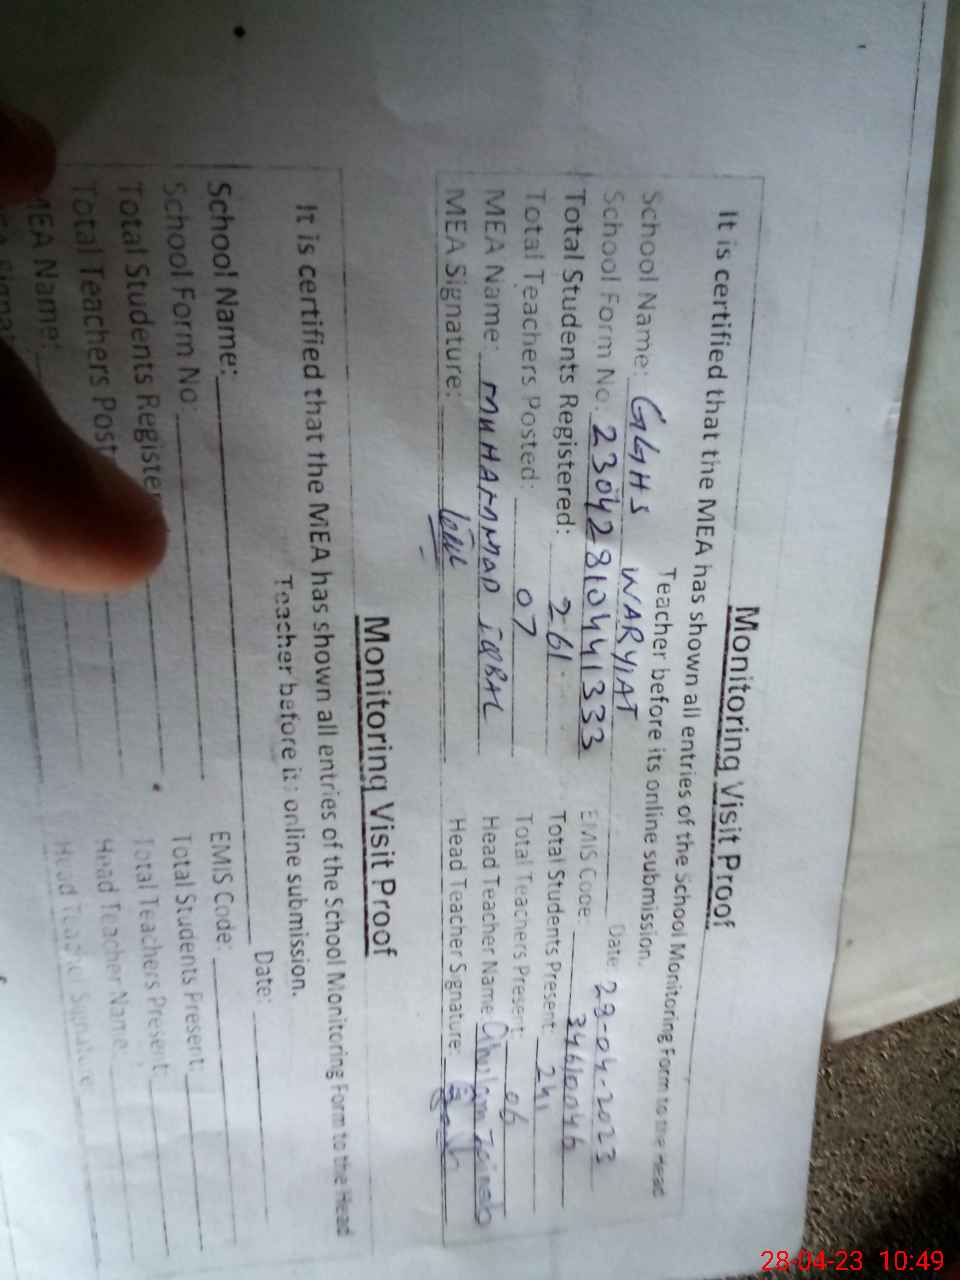 Monitoring Visit Proof
It is certified that the MEA has shown all entries of the School Monitoring Form to the Head
Teacher before its online submission.
School Name: GGHS WARYIAT Date: 28-04-2023
School Form No. 23042810441333 EMIS Code: 34610046
Total Students Registered: 261 Total Students Present: 241
Total Teachers Posted: 07 Total Teachers Present: 06
MEA Name: MUHAMMAD IQBAL Head Teacher Name Ghulam Zainab
MEA Signature: Head Teacher Signature:
Monitoring Visit Proof
It is certified that the MEA has shown all entries of the School Monitoring Form to the Head
Teacher before its online submission.
School Name: Date:
School Form No: EMIS Code:
Total Students Register Total Students Present:
Total Teachers Post Total Teachers Present:
MEA Name: Head Teacher Name:
Head Teacher Signature:
28-04-23 10:49